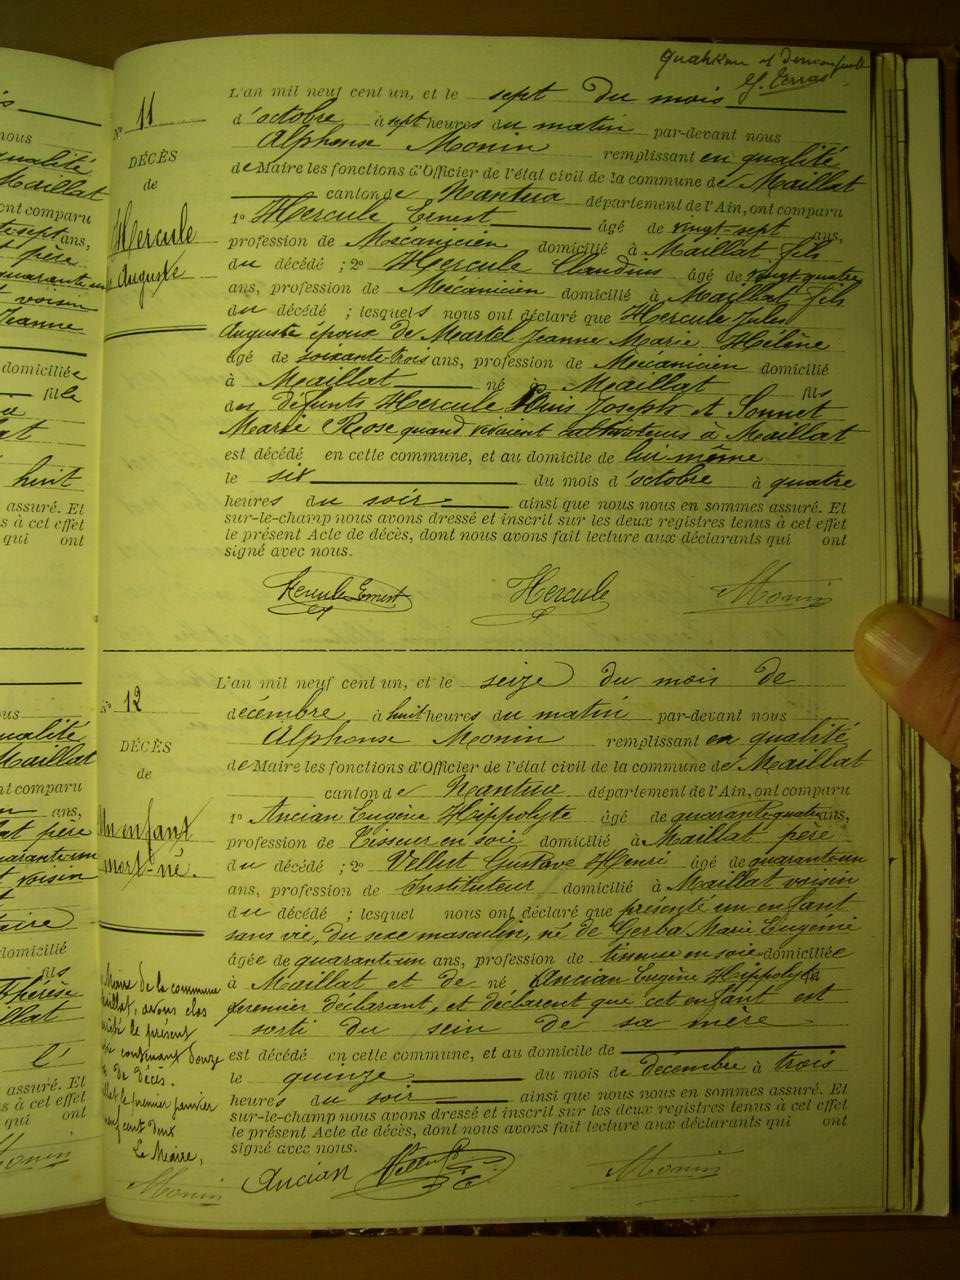 G. Terras
N° 11
DÉCÈS
de
Hercule
Auguste
L'an mil neuf cent un, et le sept du mois
d'octobre à sept heures du matin par-devant nous
Alphonse Monin remplissant en qualité
de Maire les fonctions d'Officier de l'état civil de la commune de Maillat
canton de Nantua département de l'Ain, ont comparu
1° Hercule Ernest âgé de vingt-sept ans,
profession de Mécanicien domicilié à Maillat fils
du décédé ; 2° Hercule Claudius âgé de vingt quatre
ans, profession de Mécanicien domicilié à Maillat fils
du décédé ; lesquels nous ont déclaré que Hercule Jules
Auguste époux de Martel Jeanne Marie Hélène
âgé de soixante-trois ans, profession de Mécanicien domicilié
à Maillat né à Maillat fils
des défunts Hercule Louis Joseph et Sonnet
Marie Rose quand vivaient cultivateurs à Maillat
est décédé en cette commune, et au domicile de lui même
le six du mois d'octobre à quatre
heures du soir ainsi que nous nous en sommes assuré. Et
sur-le-champ nous avons dressé et inscrit sur les deux registres tenus à cet effet
le présent Acte de décès, dont nous avons fait lecture aux déclarants qui ont
signé avec nous.
Hercule Ernest Hercule Monin
N° 12
DÉCÈS
de
Un enfant
mort-né.
L'an mil neuf cent un, et le seize du mois de
décembre à huit heures du matin par-devant nous
Alphonse Monin remplissant en qualité
de Maire les fonctions d'Officier de l'état civil de la commune de Maillat
canton de Nantua département de l'Ain, ont comparu
1° Ancian Eugène Hippolyte âgé de quarante-quatre ans,
profession de Tisseur en soie domicilié à Maillat père
du décédé ; 2° Vellut Gustave Henri âgé de quarante-un
ans, profession de Instituteur domicilié à Maillat voisin
du décédé ; lesquel nous ont déclaré que présenté un enfant
sans vie, du sexe masculin, né de Gerba Marie Eugénie
âgée de quarante-un ans, profession de tisseuse en soie domiciliée
à Maillat et de né Ancian Eugène Hippolyte
premier déclarant, et déclarent que cet enfant est
sorti du sein de sa mère
est décédé en cette commune, et au domicile de
le quinze du mois de décembre à trois
heures du soir ainsi que nous nous en sommes assuré. Et
sur-le-champ nous avons dressé et inscrit sur les deux registres tenus à cet effet
le présent Acte de décès, dont nous avons fait lecture aux déclarants qui ont
signé avec nous.
Ancian Vellut Monin
Maire de la commune
Maillat, avons clos
le présent
contenant douze
de Décès.
le premier janvier
neuf cent deux
Le Maire,
Monin